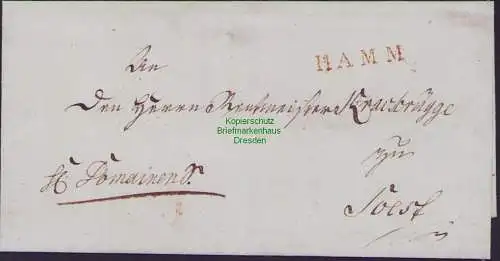 An
HAMM
Den Herrn Rentmeister
Kopierschutz
Briefmarkenhaus
Dresden
zu
Domainen S.
Soest